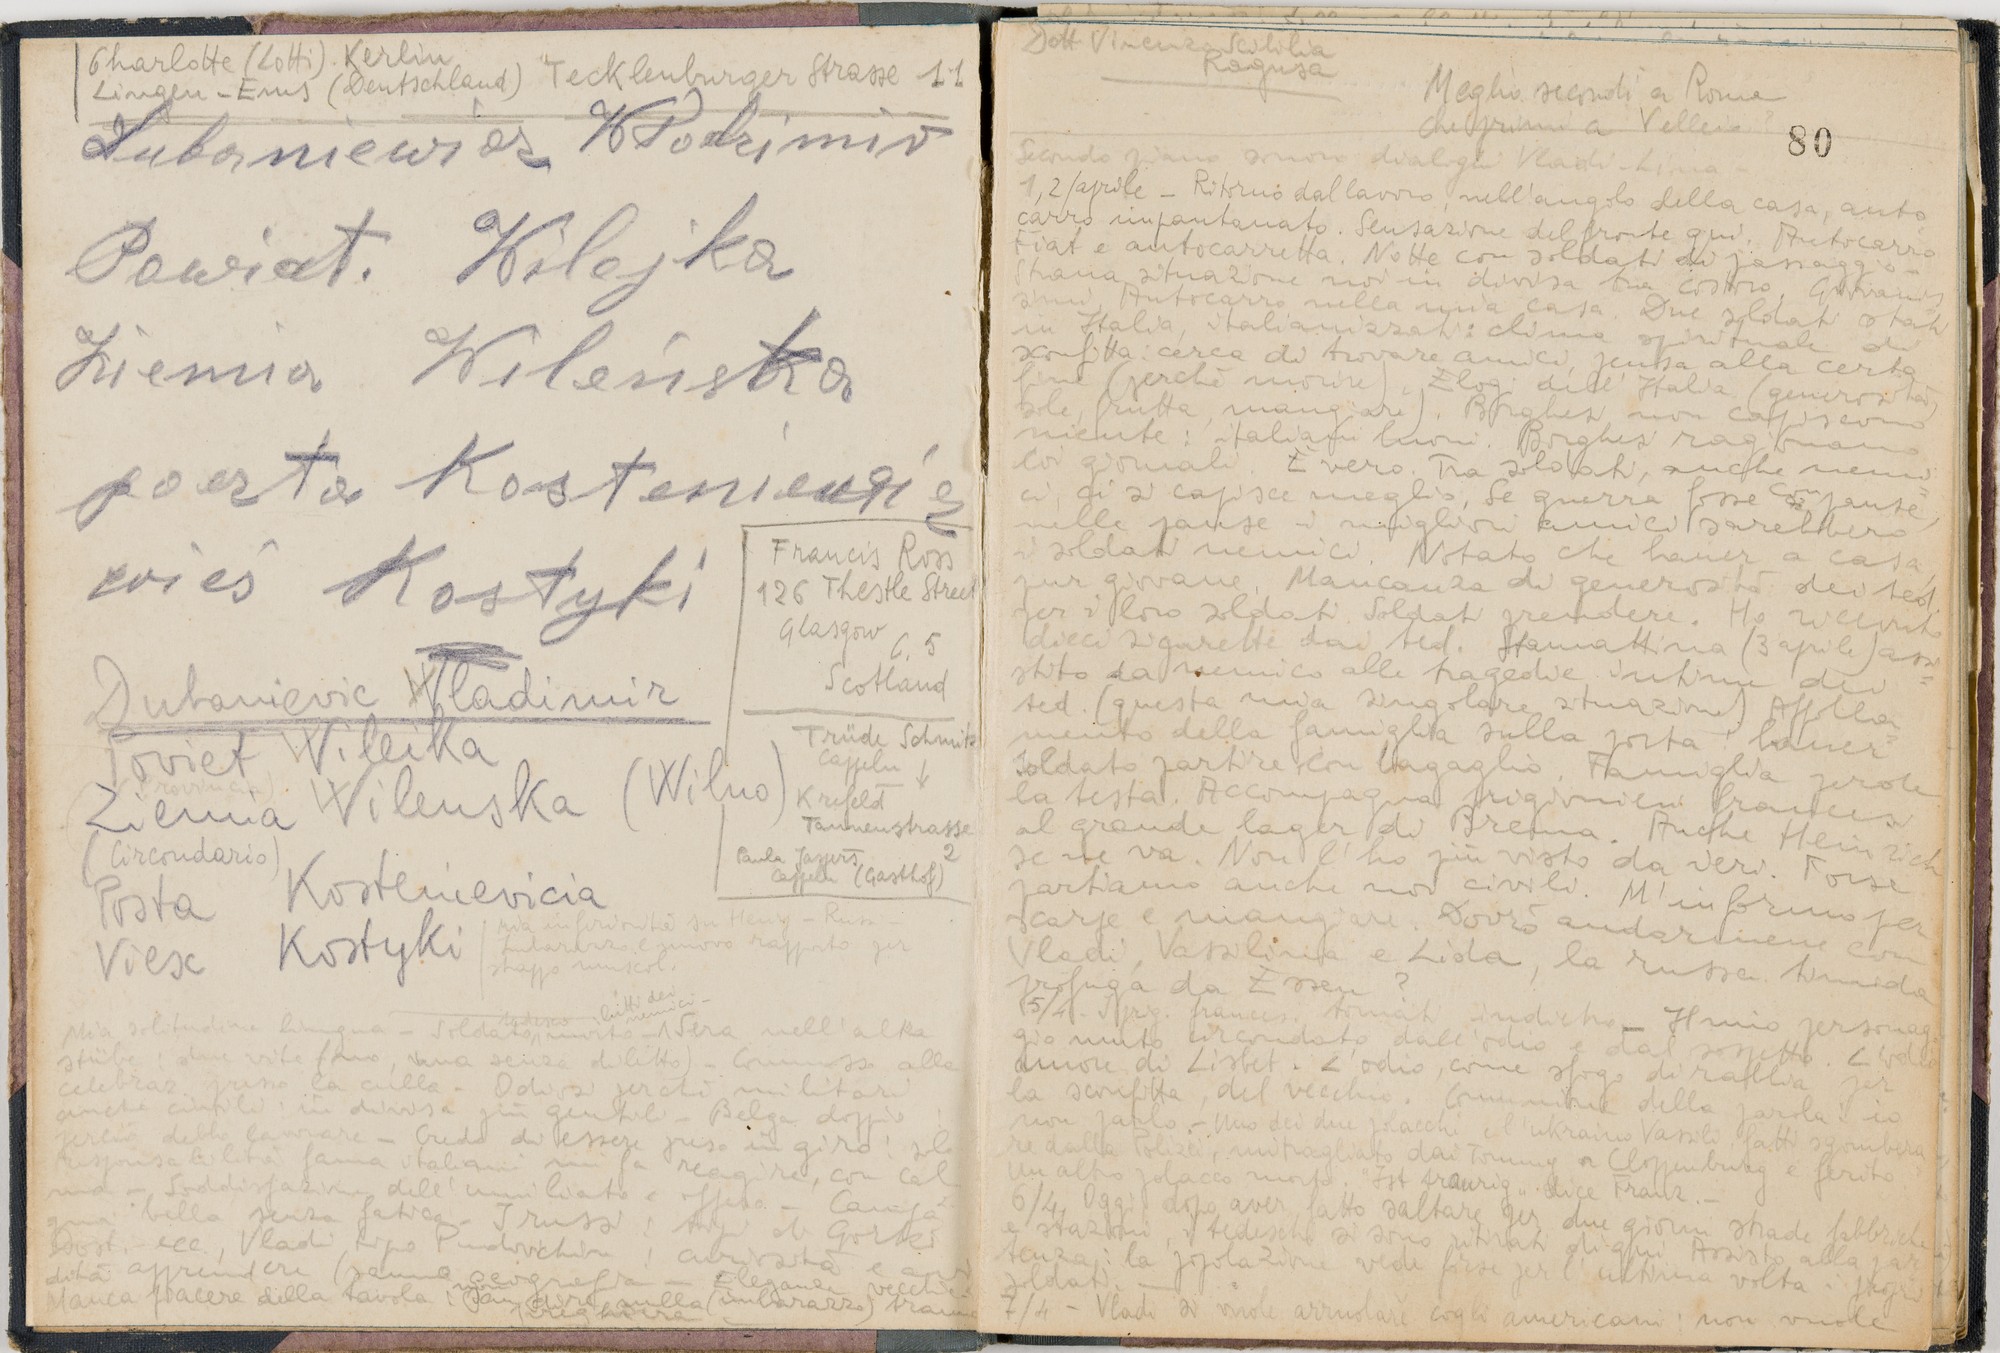 Charlotte (Lotti) Kerlin
Lingen-Ems (Deutschland) Tecklenburger Strasse 11
Dubaniewicz Włodzimir
Powiat. Wilejka
Ziemia Wileńska
poczta Kosteniewicz
wieś Kostyki
Dubanievic Wladimir
Poviet Wileika
(Provincia)
Ziemia Wilenska (Wilno)
(Circondario)
Posta Kostenievicia
Viesc Kostyki
Francis Ross
126 Thestle Street
Glasgow C. 5
Scotland
Trüde Schmitz
Cappeln ↓
Krefeld
Tannenstrasse
2
Paula Jaspers
Cappeln (Gasthof)
mia inferiorità su Henry - Russi -
Imbarazzo e nuovo rapporto per
muscol.
Mia solitudine lingua - Soldato tedesco morto - tutti dei nemici - Sera nell'
stübe: due vite (una senza diletto) - Commosso alla
celebraz. presso la culla - Odiosi perchè militari
anche civili: in divisa più gentili - Belga doppio:
perciò debbo lavorare - Credo di essere preso in giro: solo
responsabilità fama italiani mi fa reagire, con cal
ma - Soddisfazione dell'umiliato e offeso -
qua bella senza fatica - I russi: tipi di Gorki
Dost. ecc, Vladi tipo Pudovchin: curiosità e avi
dità apprendere (sanno geografia - Elegana vecchi
Manca piacere della tavola: (imbarazzo)
preghiera
Dott Vincenzo Scibilia
Ragusa
Meglio secondi a Roma
che primi a Velleia?
80
Secondo piano sonoro dialoghi Vladi - Lina -
1, 2/aprile - Ritorno dal lavoro: nell'angolo della casa, auto
carro impantanato. Sensazione del fronte qui. Autocarro
Fiat e autocarretta. Notte con soldati di passaggio -
Strana situazione noi in divisa tra costoro. Giovanis
simi. Autocarro nella mia casa. Due soldati stati
in Italia, italianizzati: clima spirituale di
sconfitta: cerca di trovare amici, pensa alla certa
fine (perchè morire). Elogi dell'Italia (generosità,
sole, frutta, mangiare). Borghesi non capiscono
niente: italiani buoni. Borghesi ragionano
coi giornali. È vero. Tra soldati, anche nemi=
ci, ci si capisce meglio, Se guerra fosse con pause,
nelle pause - i migliori amici sarebbero
i soldati nemici. Notato che bauer a casa,
pur giovane, Mancanza di generosità dei ted.
per i loro soldati. Soldati prendere. Ho ricevuto
dieci sigarette dai ted. Stamattina (3 aprile) assi=
stito da nemico alle tragedie intime dei
ted. (questa mia singolare situazione) Affolla=
mento della famiglia sulla porta: bauer
soldato partire con bagaglio. Famiglia perde
la testa. Accompagna prigionieri francesi
al grande lager di Brema. Anche Heinrich
se ne va. Non l'ho più visto da ieri. Forse
partiamo anche noi civili. M'informo per
scarpe e mangiare. Dovrò andarmene con
Vladi, Vassilina e Lida, la russa timida
profuga da Essen?
5/4 - I prig. francesi tornati indietro - Il mio personag
gio muto circondato dall'odio e dal sospetto. L'odio
amore di Lisbet. L'odio, come sfogo di rabbia per
la sconfitta, del vecchio. Comunione della parola: io
non parlo - Uno dei due polacchi e l'ukraino Vassili fatti sgombera
re dalla Polizei, mitragliato dai Tommy a Cloppenburg e ferito
Un altro polacco morto. "Ist traurig" dice Franz. -
6/4. Oggi dopo aver fatto saltare per due giorni strade fabbriche
e stazioni, i tedeschi si sono ritirati di qui Assisto alla par
tenza: la popolazione vede forse per l'ultima volta i propri
soldati. -
7/4 - Vladi si vuole arruolare cogli americani: non vuole